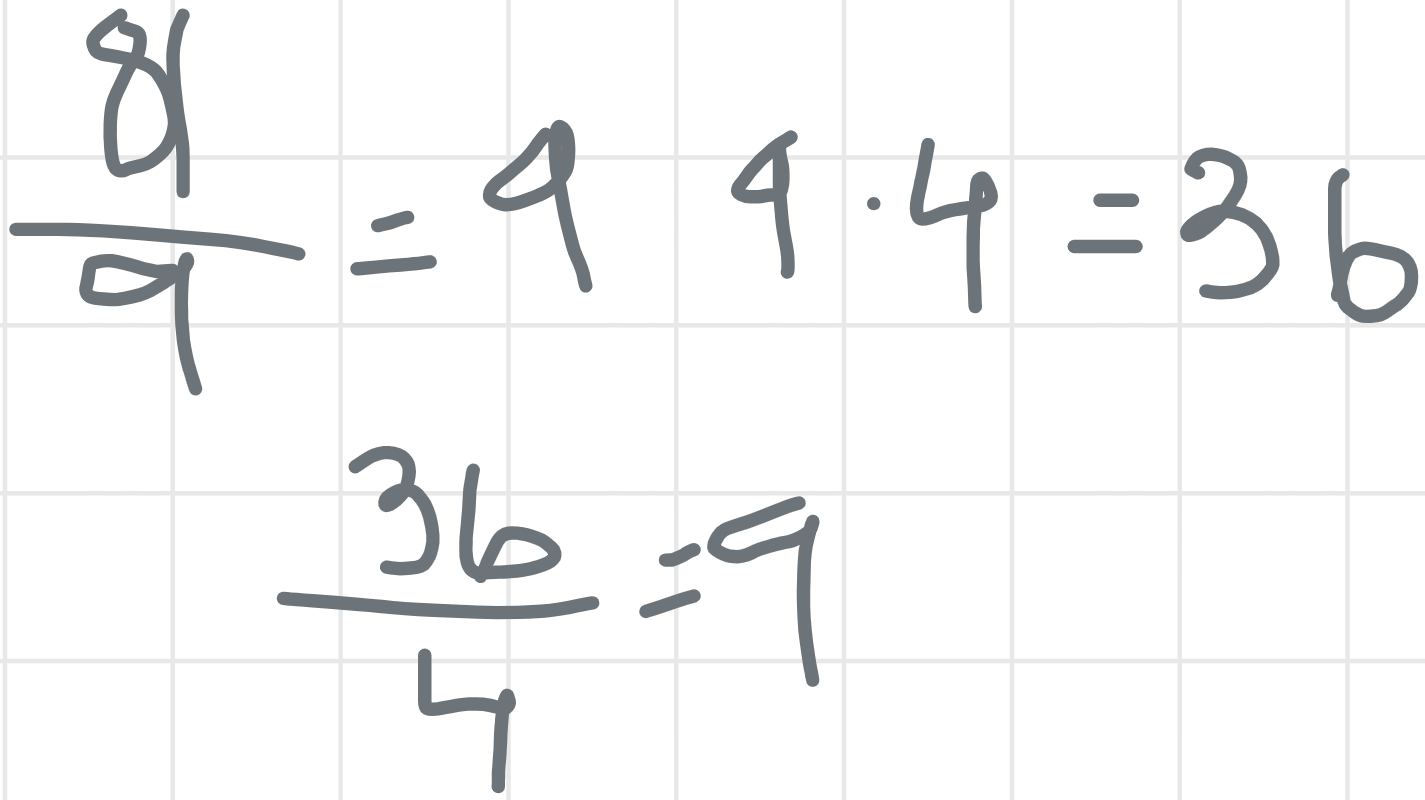 81/9 = 9   9 · 4 = 36
36/4 = 9